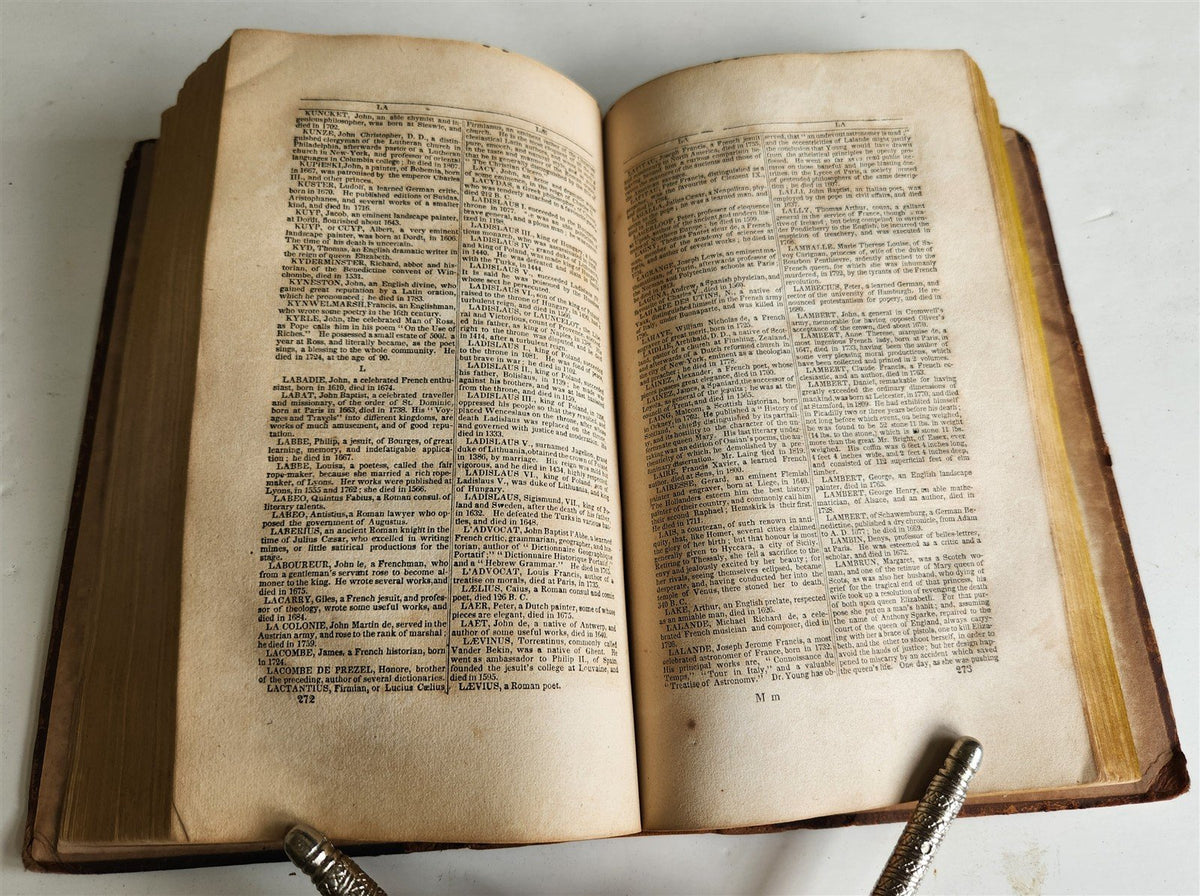 LA
KUNCKET, John, an able chymist and in-
genious philosopher, was born at Sleswic, and
died in 1702.
KUNZE, John Christopher, D. D., a distin-
guished clergyman of the Lutheran church in
Philadelphia, afterwards pastor of a Lutheran
church in New-York, and professor of oriental
languages in Columbia college; he died in 1807.
KUPIESKI, John, a painter, of Bohemia, born
in 1667, was patronised by the emperor Charles
III., and other princes.
KUSTER, Ludolf, a learned German critic,
born in 1670. He published editions of Suidas,
Aristophanes, and several works of a smaller
kind, and died in 1716.
KUYP, Jacob, an eminent landscape painter,
at Dordt, flourished about 1643.
KUYP, or CUYP, Albert, a very eminent
landscape painter, was born at Dordt, in 1606.
The time of his death is uncertain.
KYD, Thomas, an English dramatic writer in
the reign of queen Elizabeth.
KYDERMINSTER, Richard, abbot and his-
torian, of the Benedictine convent of Win-
chombe, died in 1531.
KYNESTON, John, an English divine, who
gained great reputation by a Latin oration,
which he pronounced; he died in 1783.
KYNWELMARSH, Francis, an Englishman,
who wrote some poetry in the 16th century.
KYRLE, John, the celebrated Man of Ross,
as Pope calls him in his poem "On the Use of
Riches." He possessed a small estate of 500l. a
year at Ross, and literally became, as the poet
sings, a blessing to the whole community. He
died in 1724, at the age of 90.
L
LABADIE, John, a celebrated French enthu-
siast, born in 1610, died in 1674.
LABAT, John Baptist, a celebrated traveller
and missionary, of the order of St. Dominic,
born at Paris in 1663, died in 1738. His "Voy-
ages and Travels" into different kingdoms, are
works of much amusement, and of good repu-
tation.
LABBE, Philip, a jesuit, of Bourges, of great
learning, memory, and indefatigable applica-
tion; he died in 1667.
LABBE, Louisa, a poetess, called the fair
rope-maker, because she married a rich rope-
maker, of Lyons. Her works were published at
Lyons, in 1555 and 1762; she died in 1566.
LABEO, Quintus Fabius, a Roman consul, of
literary talents.
LABEO, Antistius, a Roman lawyer who op-
posed the government of Augustus.
LABERIUS, an ancient Roman knight in the
time of Julius Cæsar, who excelled in writing
mimes, or little satirical productions for the
stage.
LABOUREUR, John le, a Frenchman, who
from a gentleman's servant rose to become al-
moner to the king. He wrote several works, and
died in 1675.
LACARRY, Giles, a French jesuit, and profes-
sor of theology, wrote some useful works, and
died in 1684.
LA COLONIE, John Martin de, served in the
Austrian army, and rose to the rank of marshal;
he died in 1759.
LACOMBE, James, a French historian, born
in 1724.
LACOMBE DE PREZEL, Honore, brother
of the preceding, author of several dictionaries.
LACTANTIUS, Firmian, or Lucius Cœlius
272
LÆ
Firmianus, an eminent
church. He is the most
cleiastical Latin
pure, smooth,
that he is generally
The Christian Cicero
LACY, John,
some eminence,
LACYDAS, a Greek
who was so attached to
died 212 B. C.
LADISLAUS I. succeeded to the
throne in 1077. He was an able
brave general, and a pious man;
LADISLAUS III., king of Hungary,
tious monarch, who was murdered
LADISLAUS IV., grand duke of
and king of Poland, was elected king
in 1440. He was defeated and slain
with the Turks in 1444.
LADISLAUS V. succeeded Ladislaus IV.
It is said he was poisoned by the
whose sect he persecuted.
LADISLAUS VI., son of the king of Poland,
raised to the throne of Hungary, and after a
turbulent reign, died in 1560.
LADISLAUS, or LAUNCELOT, the Libe-
ral and Victorious, count of Provence, succeed-
ed his father, as king of Naples, though his
right to the throne was disputed, and he died
in 1414, after a turbulent reign.
LADISLAUS I., king of Poland, succeeded
to the throne in 1081. He was of a pacific
but brave in war; he died in 1102.
LADISLAUS II., king of Poland, succeeded
his father, Bolislaus, in 1139; he made war
against his brothers, and was by them driven
from the throne, and died in 1159.
LADISLAUS III., king of Poland, so much
oppressed his people so that they revolted, and
placed Wenceslaus on the throne, after whose
death Ladislaus was replaced on the throne,
and governed with justice and moderation. He
died in 1333.
LADISLAUS V., surnamed Jagellon, grand
duke of Lithuania, obtained the crown of Poland,
in 1386, by marriage. His reign was
vigorous, and he died in 1434, highly respected.
LADISLAUS VI., king of Poland, son of
Ladislaus V., was duke of Lithuania, and king
of Hungary.
LADISLAUS, Sigismund, VII., king of Po-
land and Sweden, after the death of his father,
in 1632. He defeated the Turks in various bat-
tles, and died in 1648.
L'ADVOCAT, John Baptist l'Abbe, a learned
French critic, grammarian, geographer, and his-
torian, author of "Dictionnaire Geographique
Portatif;" "Dictionnaire Historique Portatif;"
and a "Hebrew Grammar." He died in 1765.
L'ADVOCAT, Louis Francis, author of a
treatise on morals, died at Paris, in 1735.
LÆLIUS, Caius, a Roman consul and comic
poet, died 126 B. C.
LAER, Peter, a Dutch painter, some of whose
pieces are elegant, died in 1675.
LAET, John de, a native of Antwerp, and
author of some useful works, died in 1640.
LÆVINUS, Torrestinus, commonly called
Vander Bekin, was a native of Ghent. He
went as ambassador to Philip II., of Spain,
founded the jesuit's college at Louvaine, and
died in 1595.
LÆVIUS, a Roman poet.
LA
LAFITAU, Joseph, Francis, a French jesuit
LAGRANGE, Joseph Lewis, an eminent ma-
of Turin, afterwards professor of
and Polytechnic schools at Paris
LAGUNA, Andrew, a Spanish physician, and
died in 1560.
LAHARPE,
LAHAYE, William Nicholas de, a French
engraver of great merit, born in 1725.
LAIDLIE, Archibald, D. D., a native of Scot-
land, pastor of a church at Flushing, Zealand,
and afterwards of a Dutch reformed church in
the city of New York, eminent as a theologian
he died in 1778.
LAINEZ, Alexander, a French poet, whose
possess great elegance, died in 1700.
LAINEZ, James, a Spaniard, the successor of
Loyola, as general of the jesuits; he was at the
council of Trent, and died in 1565.
LAING, Malcom, a Scottish historian, born
in Orkney, 1762. He published a "History of
Scotland," chiefly distinguished by its partiali-
ty and its hostility to the character of the un-
fortunate queen Mary. His last literary under-
taking was an edition of Ossian's poems, the au-
thenticity of which, he demolished by a pre-
liminary dissertation. Mr. Laing died in 1819.
LAIRE, Francis Xavier, a learned French
author, died at Sens, in 1800.
LAIRESSE, Gerard, an eminent Flemish
painter and engraver, born at Liege, in 1640.
The Hollanders esteem him the best history
painter of their country, and commonly call him
their second Raphael; Hemskirk is their first.
He died in 1711.
LAIS, a courtezan, of such renown in anti-
quity, that, like Homer, several cities claimed
the glory of her birth; but that honour is most
generally given to Hyccara, a city of Sicily
Retiring to Thessaly, she fell a sacrifice to the
envy and jealousy excited by her beauty; for
her rivals, seeing themselves eclipsed, became
desperate, and, having conducted her into the
temple of Venus, there stoned her to death,
340 B. C.
LAKE, Arthur, an English prelate, respected
as an amiable man, died in 1626.
LALANDE, Michael Richard de, a cele-
brated French musician and composer, died in
1726.
LALANDE, Joseph Jerome Francis, a most
celebrated astronomer of France, born in 1732.
His principal works are, "Connoissance du
Temps," "Tour in Italy," and a valuable
"Treatise of Astronomy." Dr. Young has ob-
M m
LA
served, that "an undevout astronomer is mad;"
and the eccentricities of Lalande might justify
the conclusion that Young would have drawn
from the atheistical principles he openly pro-
fessed. He went so far as to read public lec-
tures on those baneful and hope-blasting doc-
trines, in the Lycee of Paris, a society formed
of pretended philosophers of the same descrip-
tion; he died in 1807.
LALLI, John Baptist, an Italian poet, was
employed by the pope in civil affairs, and died
in 1637.
LALLY, Thomas Arthur, count, a gallant
general in the service of France, though a na-
tive of Ireland; but being compelled to surren-
der Pondicherry to the English, he incurred the
suspicion of treachery, and was executed in
1766.
LAMBALLE, Marie Therese Louise, of Sa-
voy Carignan, princess of, wife of the duke of
Bourbon Penthievre, ardently attached to the
French queen, for which she was inhumanly
murdered, in 1792, by the tyrants of the French
revolution.
LAMBECIUS, Peter, a learned German, and
rector of the university of Hamburgh. He re-
nounced protestantism for popery, and died in
1680.
LAMBERT, John, a general in Cromwell's
army, memorable for having opposed Oliver's
acceptance of the crown, died about 1670.
LAMBERT, Anne Therese, marquise de, a
most ingenious French lady, born at Paris, in
1647, died in 1733, having been the author of
some very pleasing moral productions, which
have been collected and printed in 2 volumes.
LAMBERT, Claude Francis, a French ec-
clesiastic, and an author, died in 1763.
LAMBERT, Daniel, remarkable for having
greatly exceeded the ordinary dimensions of
mankind, was born at Leicester, in 1770, and died
at Stamford, in 1809. He had exhibited himself
in Picadilly two or three years before his death;
not long before which event, on being weighed,
he was found to be 52 stone 11 lbs. in weight
(14 lbs. to the stone,) which is 10 stone 11 lbs.
more than the great Mr. Bright, of Essex, ever
weighed. His coffin was 6 feet 4 inches long,
4 feet 4 inches wide, and 2 feet 4 inches deep,
and consisted of 112 superficial feet of elm
timber.
LAMBERT, George, an English landscape
painter, died in 1765.
LAMBERT, George Henry, an able mathe-
matician, of Alsace, and an author, died in
1728.
LAMBERT, of Schawemburg, a German Be-
nedictine, published a dry chronicle, from Adam
to A. D. 1077; he died in 1669.
LAMBIN, Denys, professor of belles-lettres,
at Paris. He was esteemed as a critic and a
scholar, and died in 1672.
LAMBRUN, Margaret, was a Scotch wo-
man, and one of the retinue of Mary queen of
Scots, as was also her husband, who dying of
grief for the tragical end of that princess, his
wife took up a resolution of revenging the death
of both upon queen Elizabeth. For that pur-
pose she put on a man's habit; and, assuming
the name of Anthony Sparke, repaired to the
court of the queen of England, always carry-
ing with her a brace of pistols, one to kill Eliza-
beth, and the other to shoot herself, in order to
avoid the hands of justice; but her design hap-
pened to miscarry by an accident which saved
the queen's life. One day, as she was pushing
273